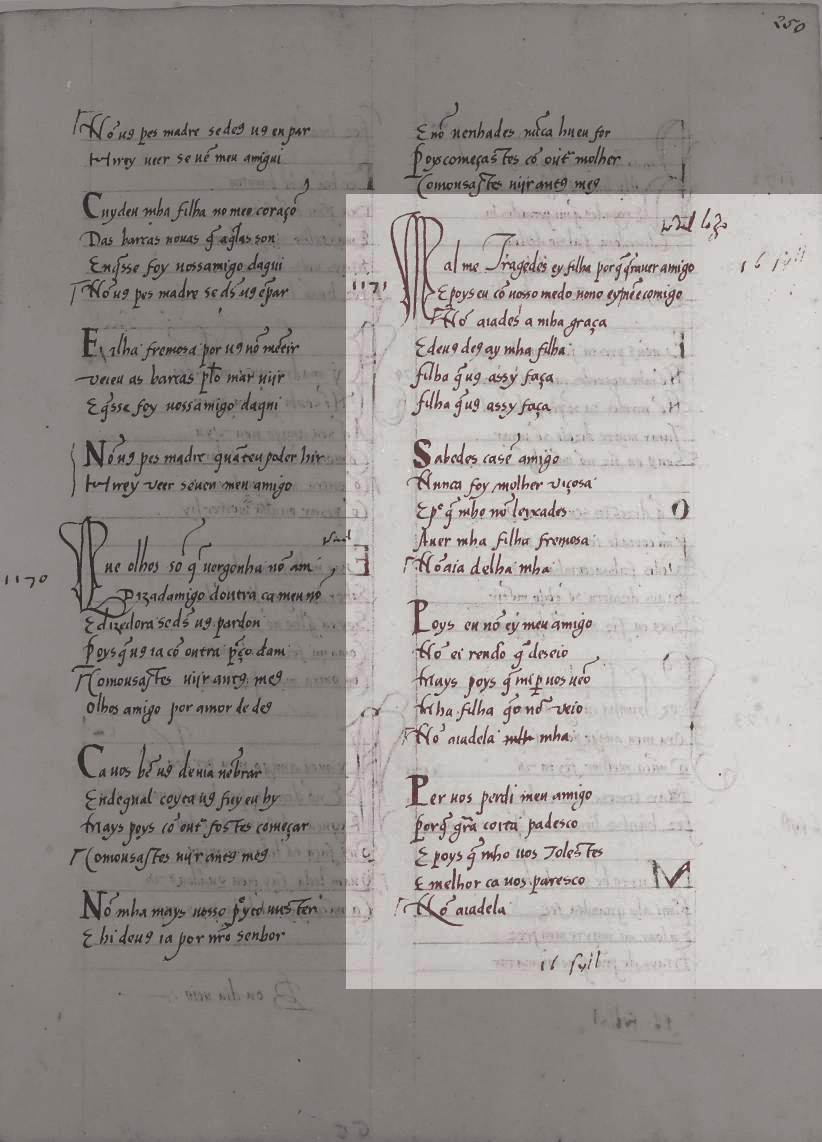 250
Nõ uꝯ pes madre sedeꝯ uꝯ en par
Hirey ueer se uẽ meu amigui
Cuydeu mha filha no meo coraçõ
Das barcas nouas q̃ aq̃las son
En q̃sse foy uossamigo daqui
Nõ uꝯ pes madre se ds̃ uꝯ ẽpar
Filha fremosa por uꝯ nõ mẽtir
veieu as barcas pelo mar uijr
E q̃sse foy uossamigo daqui
Nõ uꝯ pes madre quãteu poder hir
Hirey veer seuen meu amigo
1170
Que olhos sõ q̃ uergonha nõ am
Dizadamigo doutra ca meu nõ
E dizedora se ds̃ uꝯ pardon
Poys q̃ uꝯ ia cõ outra preço dam
Comousastes uijr antꝯ meꝯ
Olhos amigo por amor de deꝯ
Ca uos bẽ uꝯ deuia nẽbrar
En degual coyta uꝯ fuy eu hy
Mays poys cõ outr̃ fostes começar
Comousastes uijr antꝯ meꝯ
Nõ mha mays uosso preyto mester
E hi deuꝯ ia por nr̃o senhor
E nõ uenhades nũca hu eu for
Poys começastes cõ outr̃ molher
Comousastes uijr antꝯ meꝯ
1171
Mal me Tragedes ey filha porq̃ q̃r auer amigo
E poys eu cõ uosso medo nono ey nẽ e comigo
Nõ aiades a mha graça
E deuꝯ deꝯ ay mha filha
filha q̃ uꝯ assy faça
filha q̃ uꝯ assy faça
Sabedes ca sẽ amigo
Nunca foy molher viçosa
E por q̃ mho nõ leixades
Auer mha filha fremosa
Nõ aia delha mha
Poys eu nõ ey meu amigo
Nõ ei rendo q̃ deseio
Mays poys q̃ mi por uos uẽo
Mha filha q̃o nõ veio
Nõ aiadela mha
Per uos perdi meu amigo
Porq̃ grã coita padesco
E poys q̃ mho uos Tolestes
E melhor ca uos paresco
Nõ aiadela
16 syll